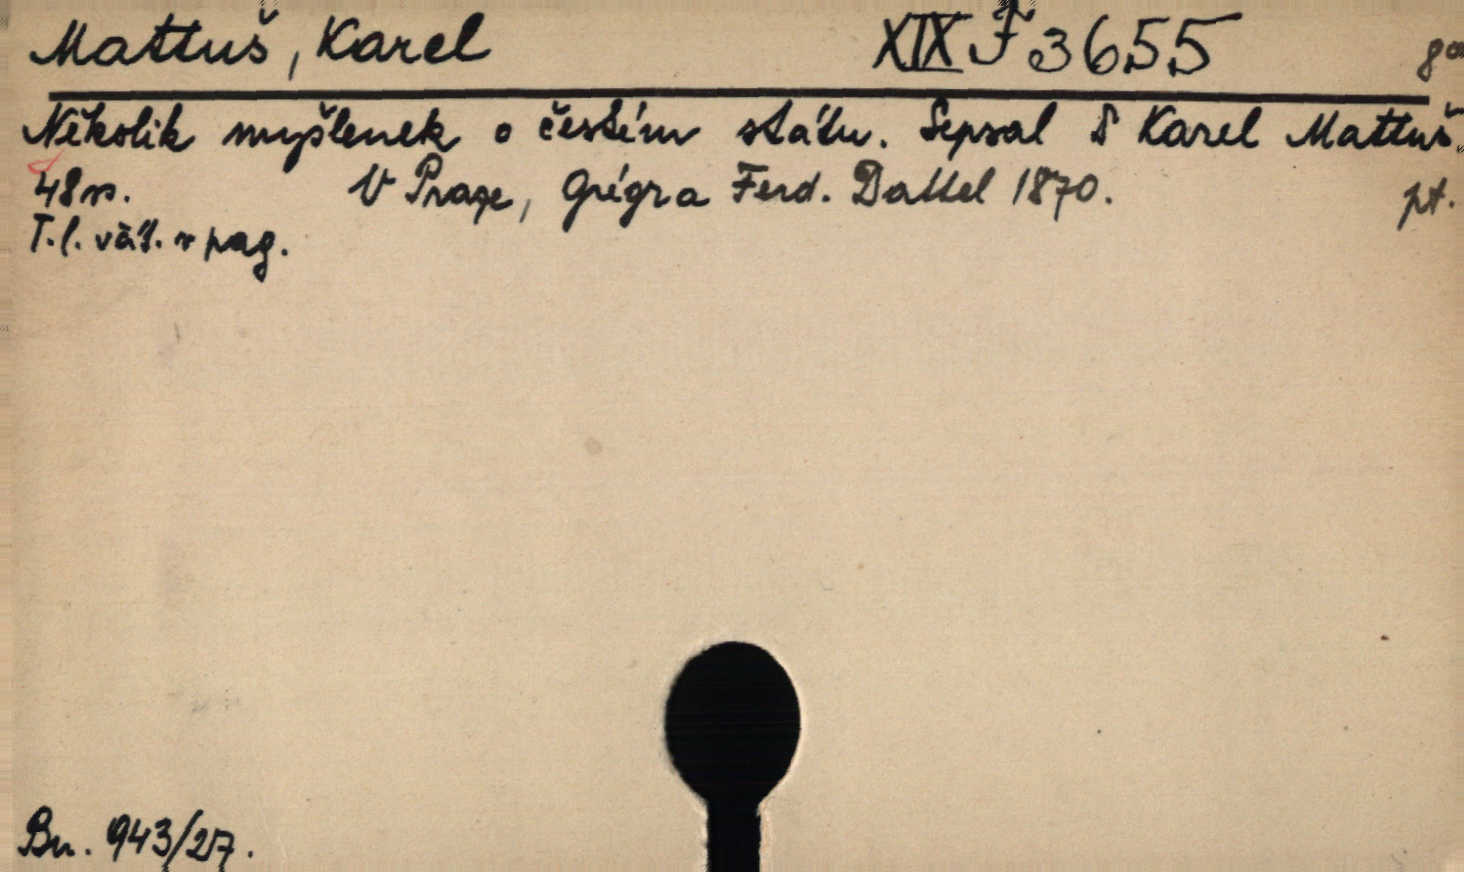 Mattuš, Karel XIX F 3655
Několik myšlenek o českém státu. Sepsal Dr Karel Mattuš.
48 s. V Praze, Grégr a Ferd. Dattel 1870. pt.
T. l. váz. v pag.
Bn. 943/27.